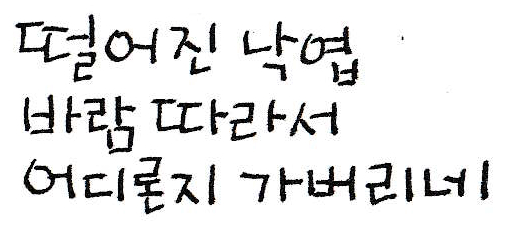 떨어진 낙엽
바람 따라서
어디론지 가버리네